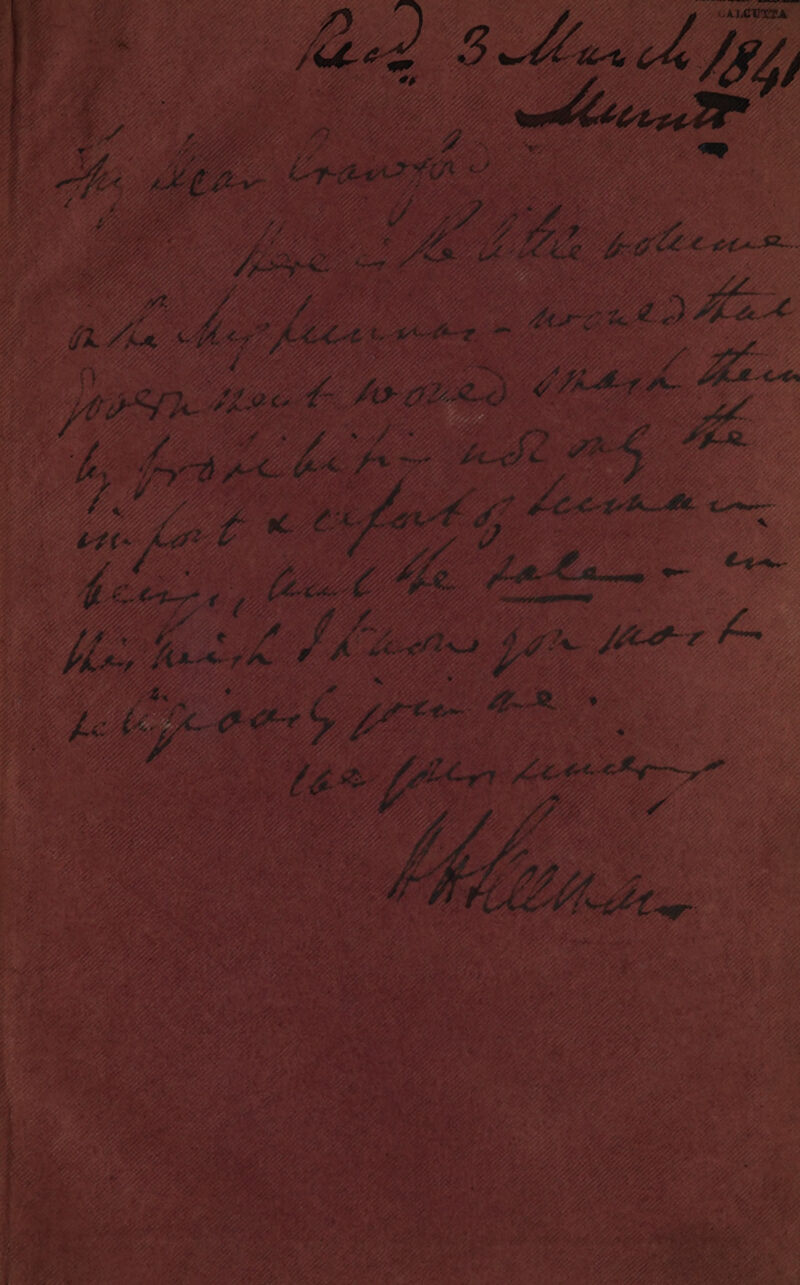 CALCUTTA
Recd. 3 March 1841
My dear Crawford
Here is the little volume
on the Megpunnas - would that
Government would smash them
by prohibiting not only the
import & export of human
beings, but the sale - in
this wish I know you most
religiously join me.
Yours sincerely
WHSleeman